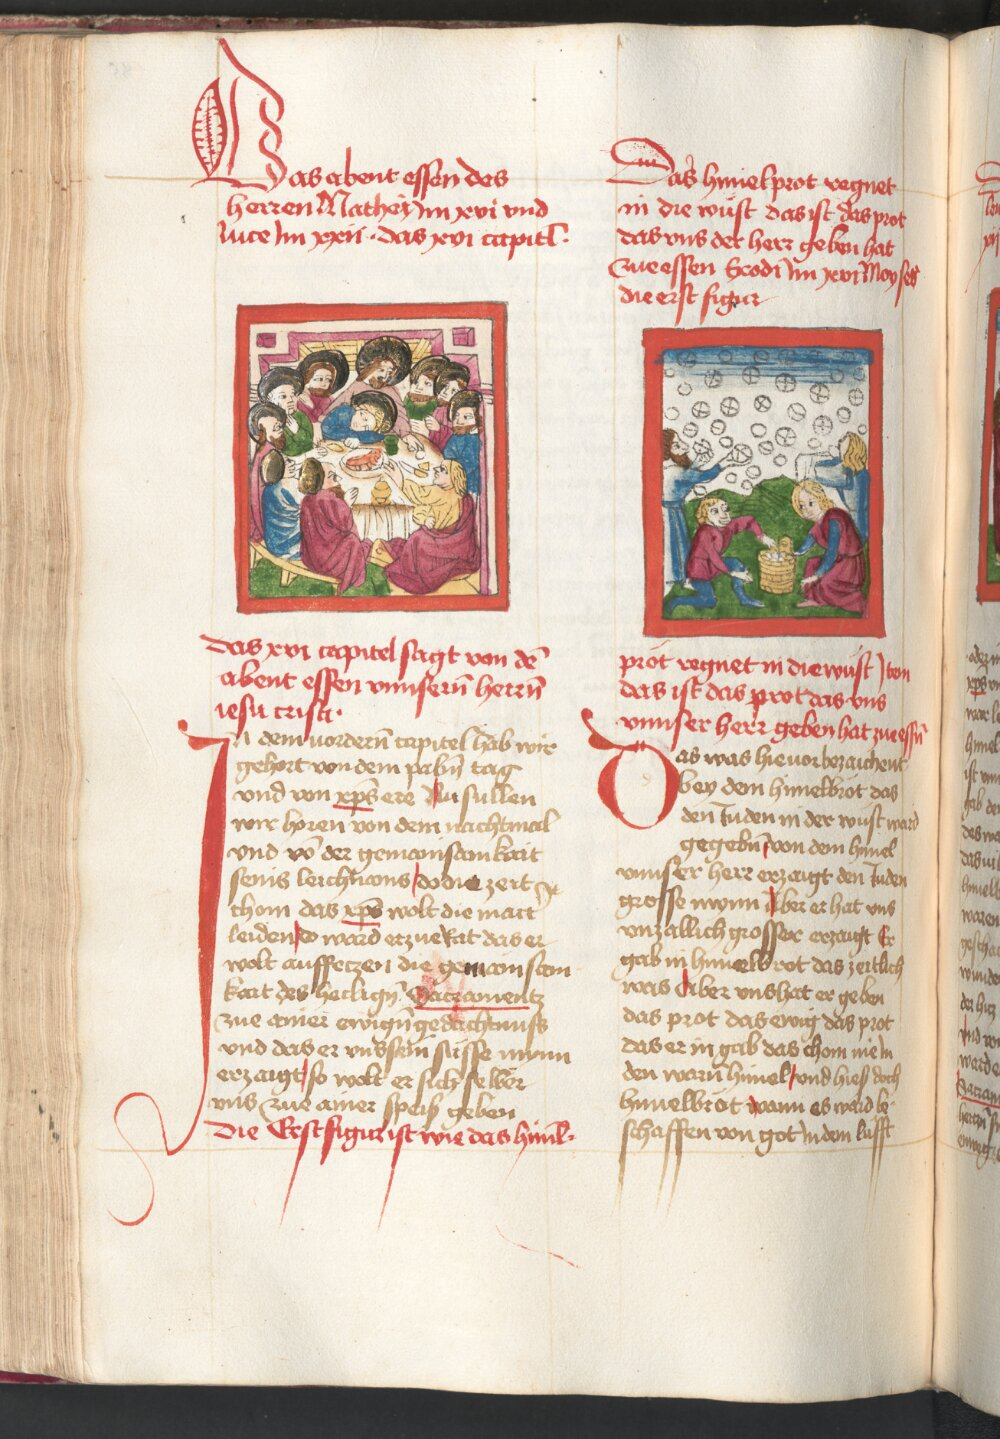 Das abent essen des
herren Mathei jm xxvi vnd
luce jm xxii · das xvi capitl ·
das xvi capitel sagt von dē
abent essen vnnsern̄ herrn̄
iesu cristi ·
In dem vordern̄ capitel hab wir
gehort von dem palm̄ tag
vnd von xp̄s ere Nu sullen
wir horen von dem nachtmal
vnd vō der gemainsamkait
seins leichnams do die zeit zu
chom das xp̄s wolt die mart
leiden so ward er zue Rat das er
wolt auffseczen die gemainsam
kait des heilign̄ Sacramentz
zue ainer ewign̄ gedächtnuss
vnd das er vns sein süsse mynn
erzaigt so wolt er sich selber
vns zue ainer speiß geben
Die Erst figur ist wie das himl-
Das himelprot regnet
in die wüst das ist das prot
das vns der herr geben hat
zue essen Exodi jm xvi Moyses
die erst figur
prot regnet in die wüst
das ist das prot das vns
vnnser herr geben hat zue essn̄
Das was hie vor bezaichent
bey dem himelbrot das
den Juden in der wüst ward
gegebn̄ von dem himel
vnnser herr erzaigt den Juden
grosse mynn Aber er hat vns
vnzallich grosser erzaigt Er
gab in himelbrot das zeitlich
was Aber vns hat er geben
das prot das ewig das prot
das er in gab das chom nie in
den warn̄ himel vnd hies doch
himelbrot wann es ward be-
schaffen von got in dem lufft